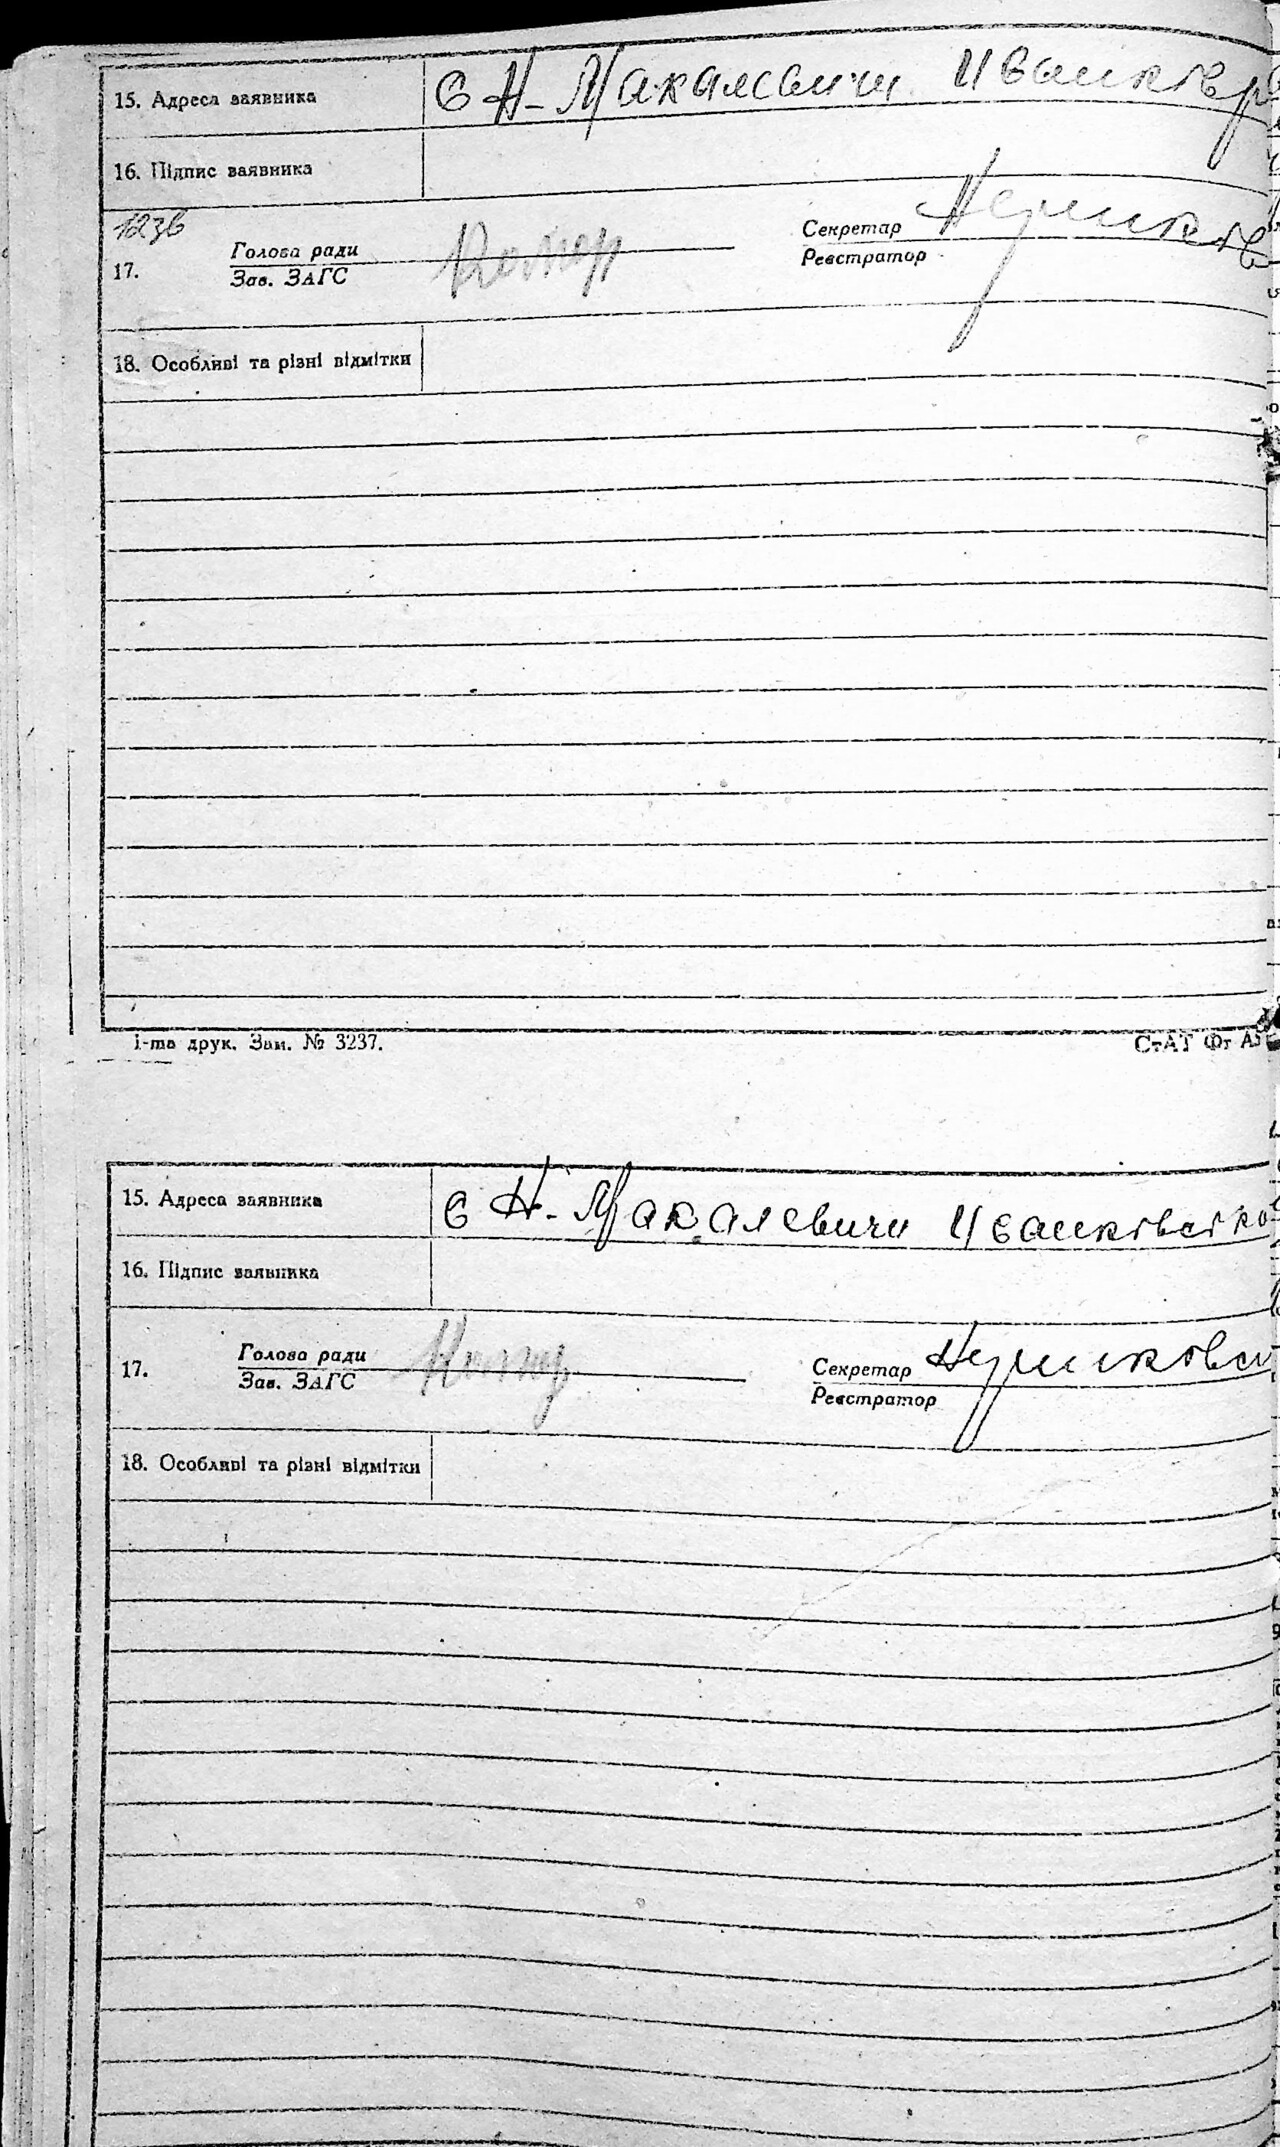 15. Адреса заявника С Н-Макалевичи Иванков р
16. Підпис заявника
1236
17. Голова ради
Зав. ЗАГС
Секретар
Реєстратор
18. Особливі та різні відмітки
1-та друк. Зам. № 3237.
СтАТ Фт А
15. Адреса заявника С Н-Макалевичи Иванківсько
16. Підпис заявника
17. Голова ради
Зав. ЗАГС
Секретар
Реєстратор
18. Особливі та різні відмітки